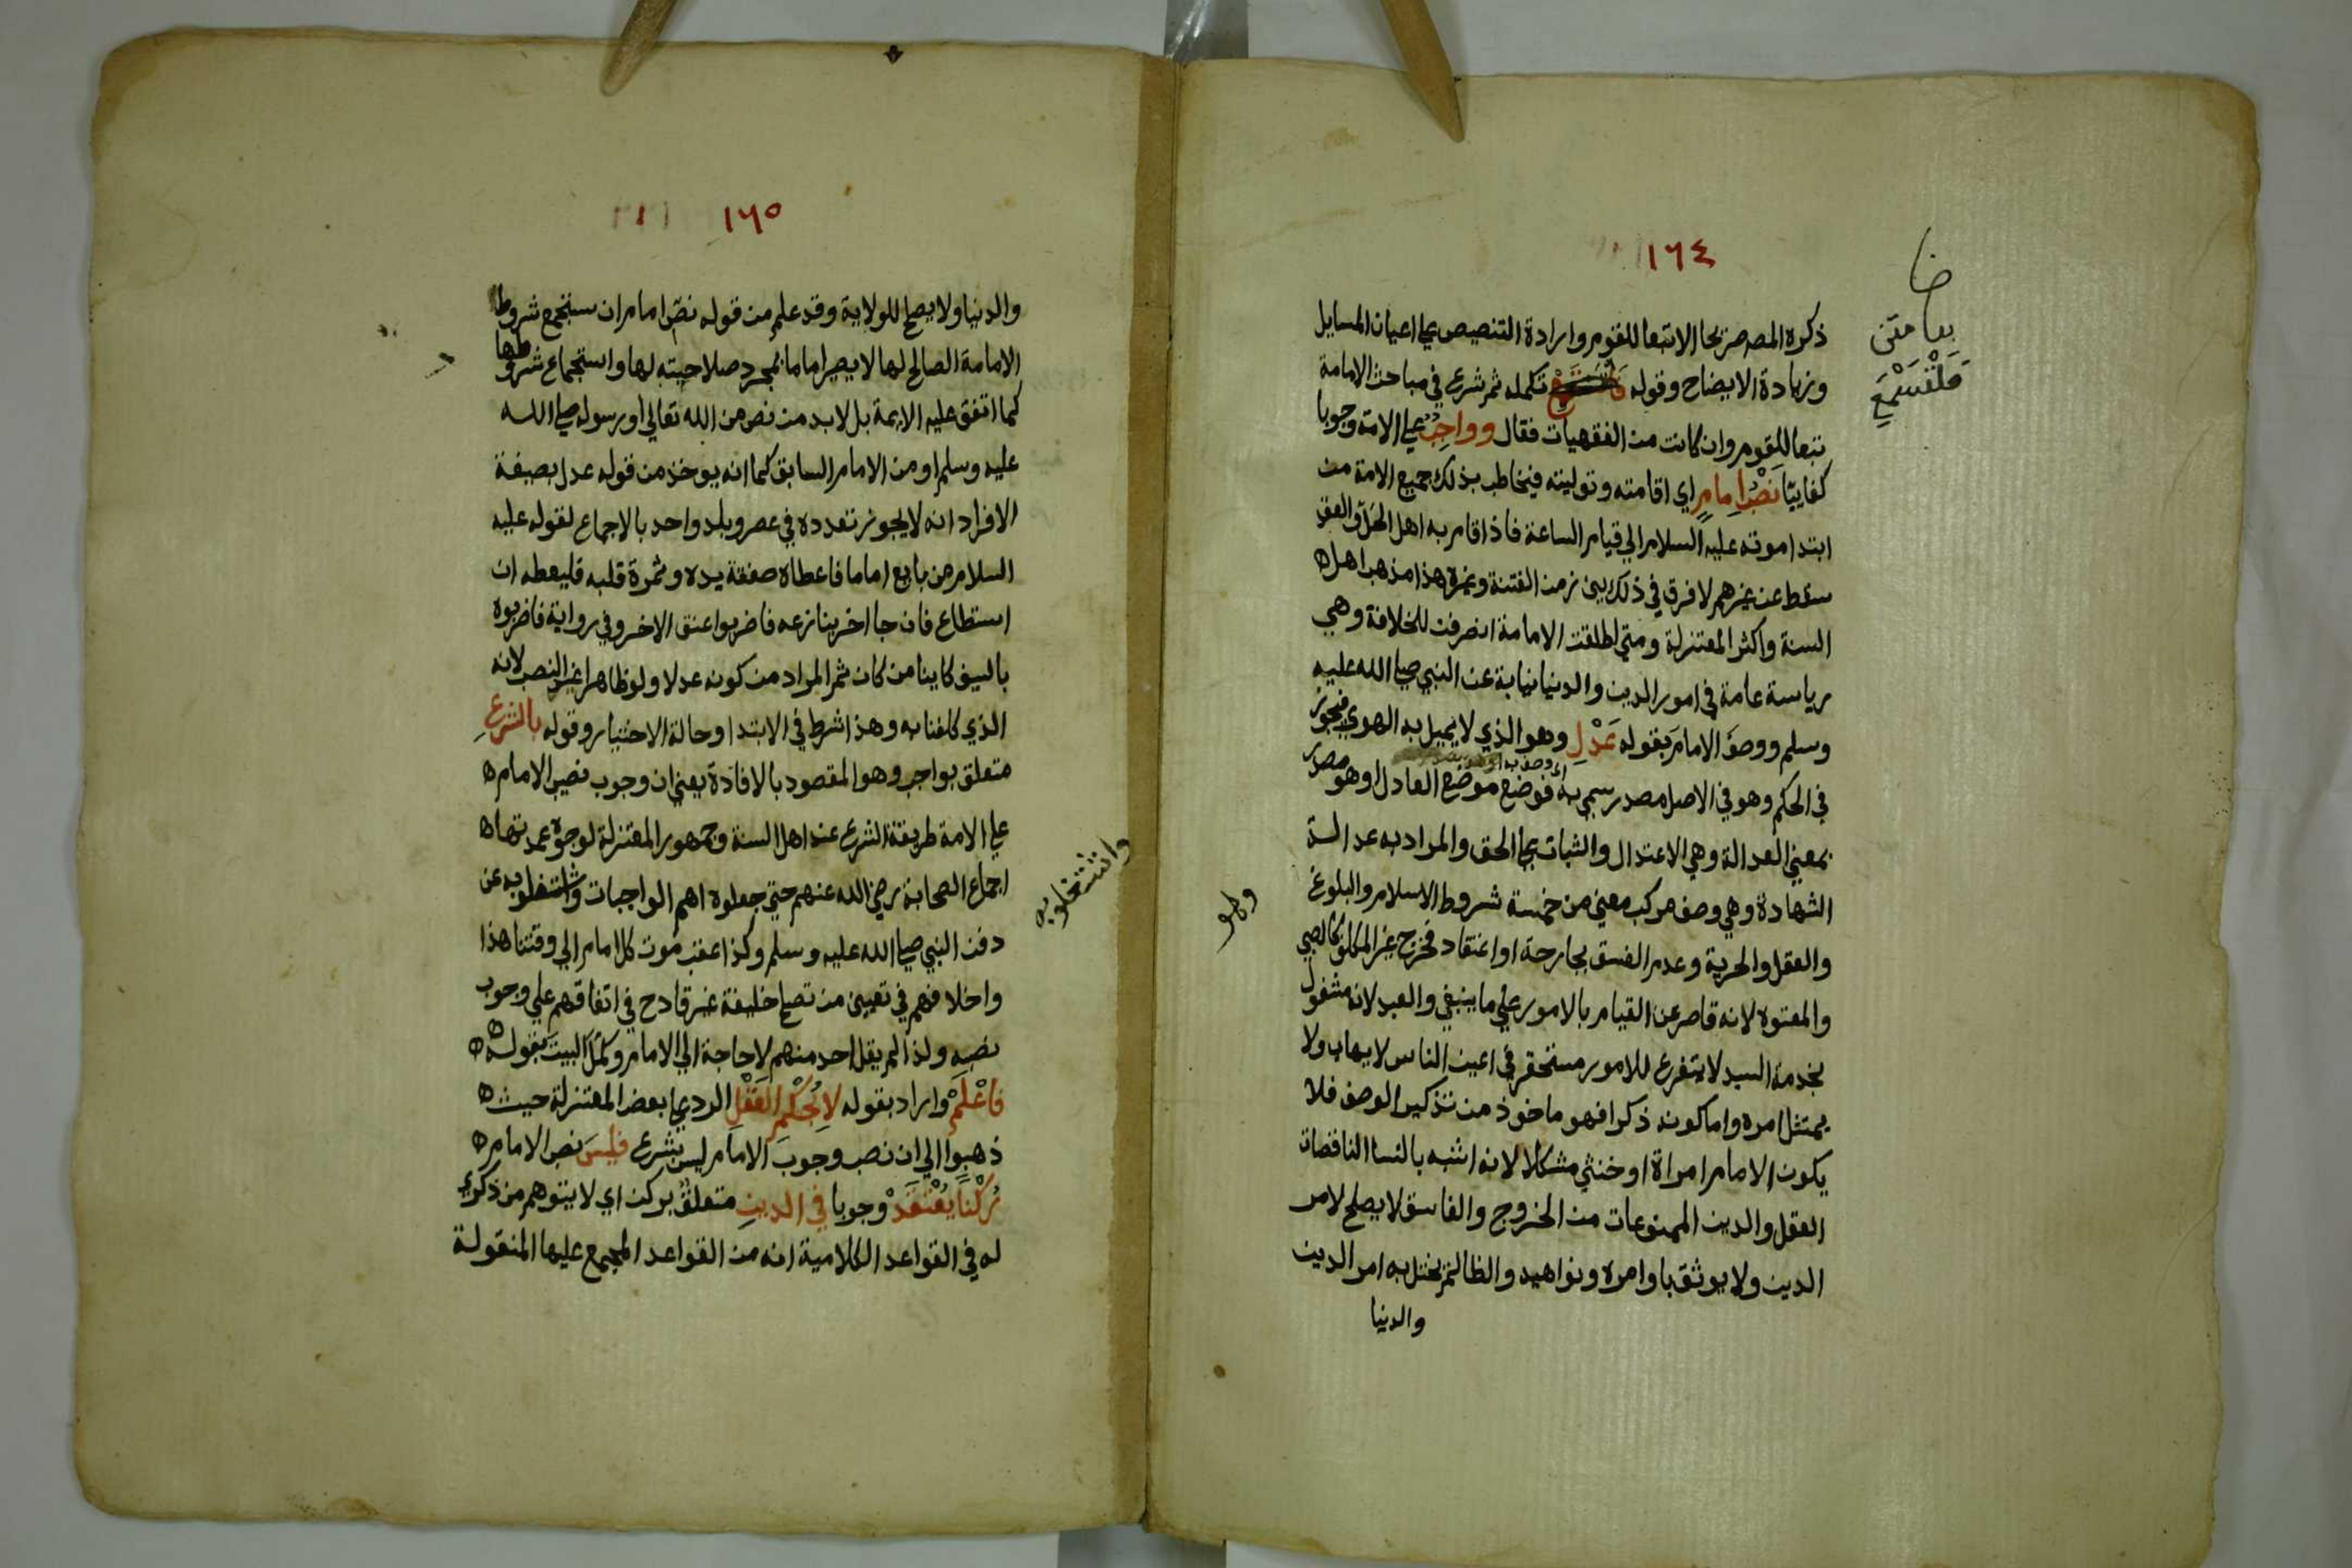 ١٦٤
ذكره المصـ من محا الاتبعا للقوم وارادة التنصيص علي اعيان المسايل
وزيادة الايضاح وقوله فاستمع تكمله ثم شرع في مباحث الامامة
تبعا للقوم وان كانت من الفقهيات فقال وواجب علي الامة وجوبا
كفاييا نصب امام اي اقامته وتوليته فيخاطب بذلك جميع الامة من
ابتدا موته عليه السلام الي قيام الساعة فاذا قام به اهل الحل والعقد
سقط عن غيرهم لا فرق في ذلك بين زمن الفتنة وغيره هذا مذهب اهل
السنة واكثر المعتزلة ومتي اطلقت الامامة انصرفت للخلافة وهي
رياسة عامة في امور الدين والدنيا نيابة عن النبي صلي الله عليه
وسلم ووصف الامام بقوله عدل وهو الذي لا يميل به الهوي فيجوز
في الحكم وهو في الاصل مصدر سمي به فوضع موضع العادل او هو مصدر
بمعني العدالة وهي الاعتدال والثبات علي الحق والمراد به عدالة
الشهادة وهي وصف مركب معني من خمسة شروط الاسلام والبلوغ
والعقل والحرية وعدم الفسق بجارحة او اعتقاد فخرج غير المكلف كالصبي
والمعتوه لانه قاصر عن القيام بالامور علي ما ينبغي والعبد لانه مشغول
بخدمة السيد لا يتفرغ للامور مستحقر في اعين الناس لا يهاب ولا
يمتثل امره واما كونه ذكرا فهو ماخوذ من تذكير الوصف فلا
يكون الامام امراة او خنثي مشكلا لانه اشبه بالنسا الناقصات
العقل والدين الممنوعات من الخروج والفاسق لا يصلح لامر
الدين ولا يوثق باوامره ونواهيه والظالم يختل به امر الدين
والدنيا
بعا متن
فلتستمع
وهو
١٦٥
والدنيا ولا يصلح للولاية وقد علم من قوله نصب امام ان مستجمع شروط
الامامة الصالح لها لا يصير اماما بمجرد صلاحيته لها واستجماع شروطها
كما اتفق عليه الايمة بل لا بد من نص من الله تعالي او رسوله صلي الله
عليه وسلم او من الامام السابق كما انه يوخذ من قوله عدل بصيغة
الافراد انه لا يجوز تعدده في عصر وبلد واحد بالاجماع لقوله عليه
السلام من بايع اماما فاعطاه صفقة يده وثمرة قلبه فليعطه ان
استطاع فان جا اخر ينازعه فاضربوا عنق الاخر وفي رواية فاضربوه
بالسيف كاينا من كان ثم المراد من كونه عدلا ولو ظاهرا عند النصب لانه
الذي كلفنا به وهذا شرط في الابتدا وحالة الاختيار وقوله بالشرع
متعلق بواجب وهو المقصود بالافادة يعني ان وجوب نصب الامام
علي الامة طريقة الشرع عند اهل السنة وجمهور المعتزلة لوجوه عمدتها
اجماع الصحابة رضي الله عنهم حتي جعلوه اهم الواجبات واشتغلوا به عن
دفن النبي صلي الله عليه وسلم وكذا عقب موت كل امام الي وقتنا هذا
واختلافهم في تعيين من تصلح خليفة غير قادح في اتفاقهم علي وجوب
نصبه ولذا لم يقل احد منهم لا حاجة الي الامام وكمل البيت بقوله
فاعلم واراد بقوله لا بحكم العقل الرد علي بعض المعتزلة حيث
ذهبوا الي ان نصب وجوب الامام ليس بشرع فليس نصب الامام
ركنا يعتقد وجوبا في الدين متعلق بركن اي لا يتوهم من ذكري
له في القواعد الكلامية انه من القواعد المجمع عليها المنقولة
واشتغلوا به